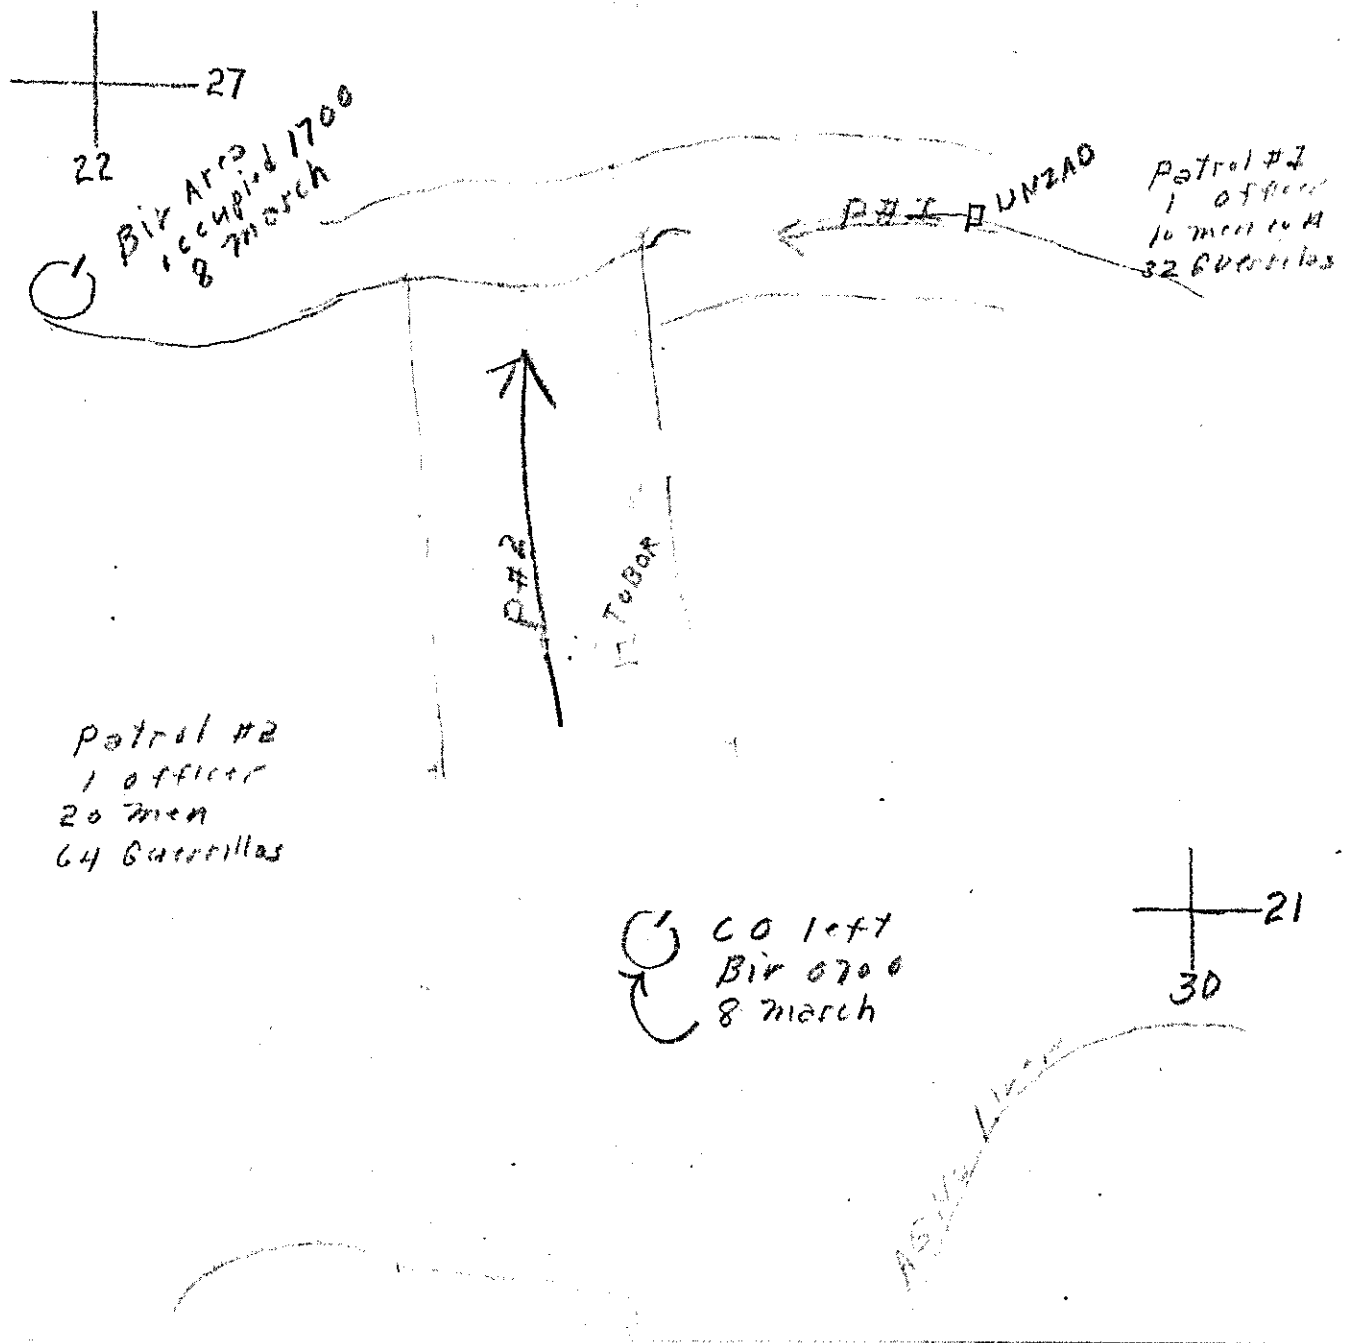 27
22
Bir Area
occupied 1700
8 March
P#1
UNZAD
Patrol #1
1 officer
10 men
32 Guerrillas
P#2
TUBOA
Patrol #2
1 officer
20 men
64 Guerrillas
CO left
Bir 0700
8 March
21
30